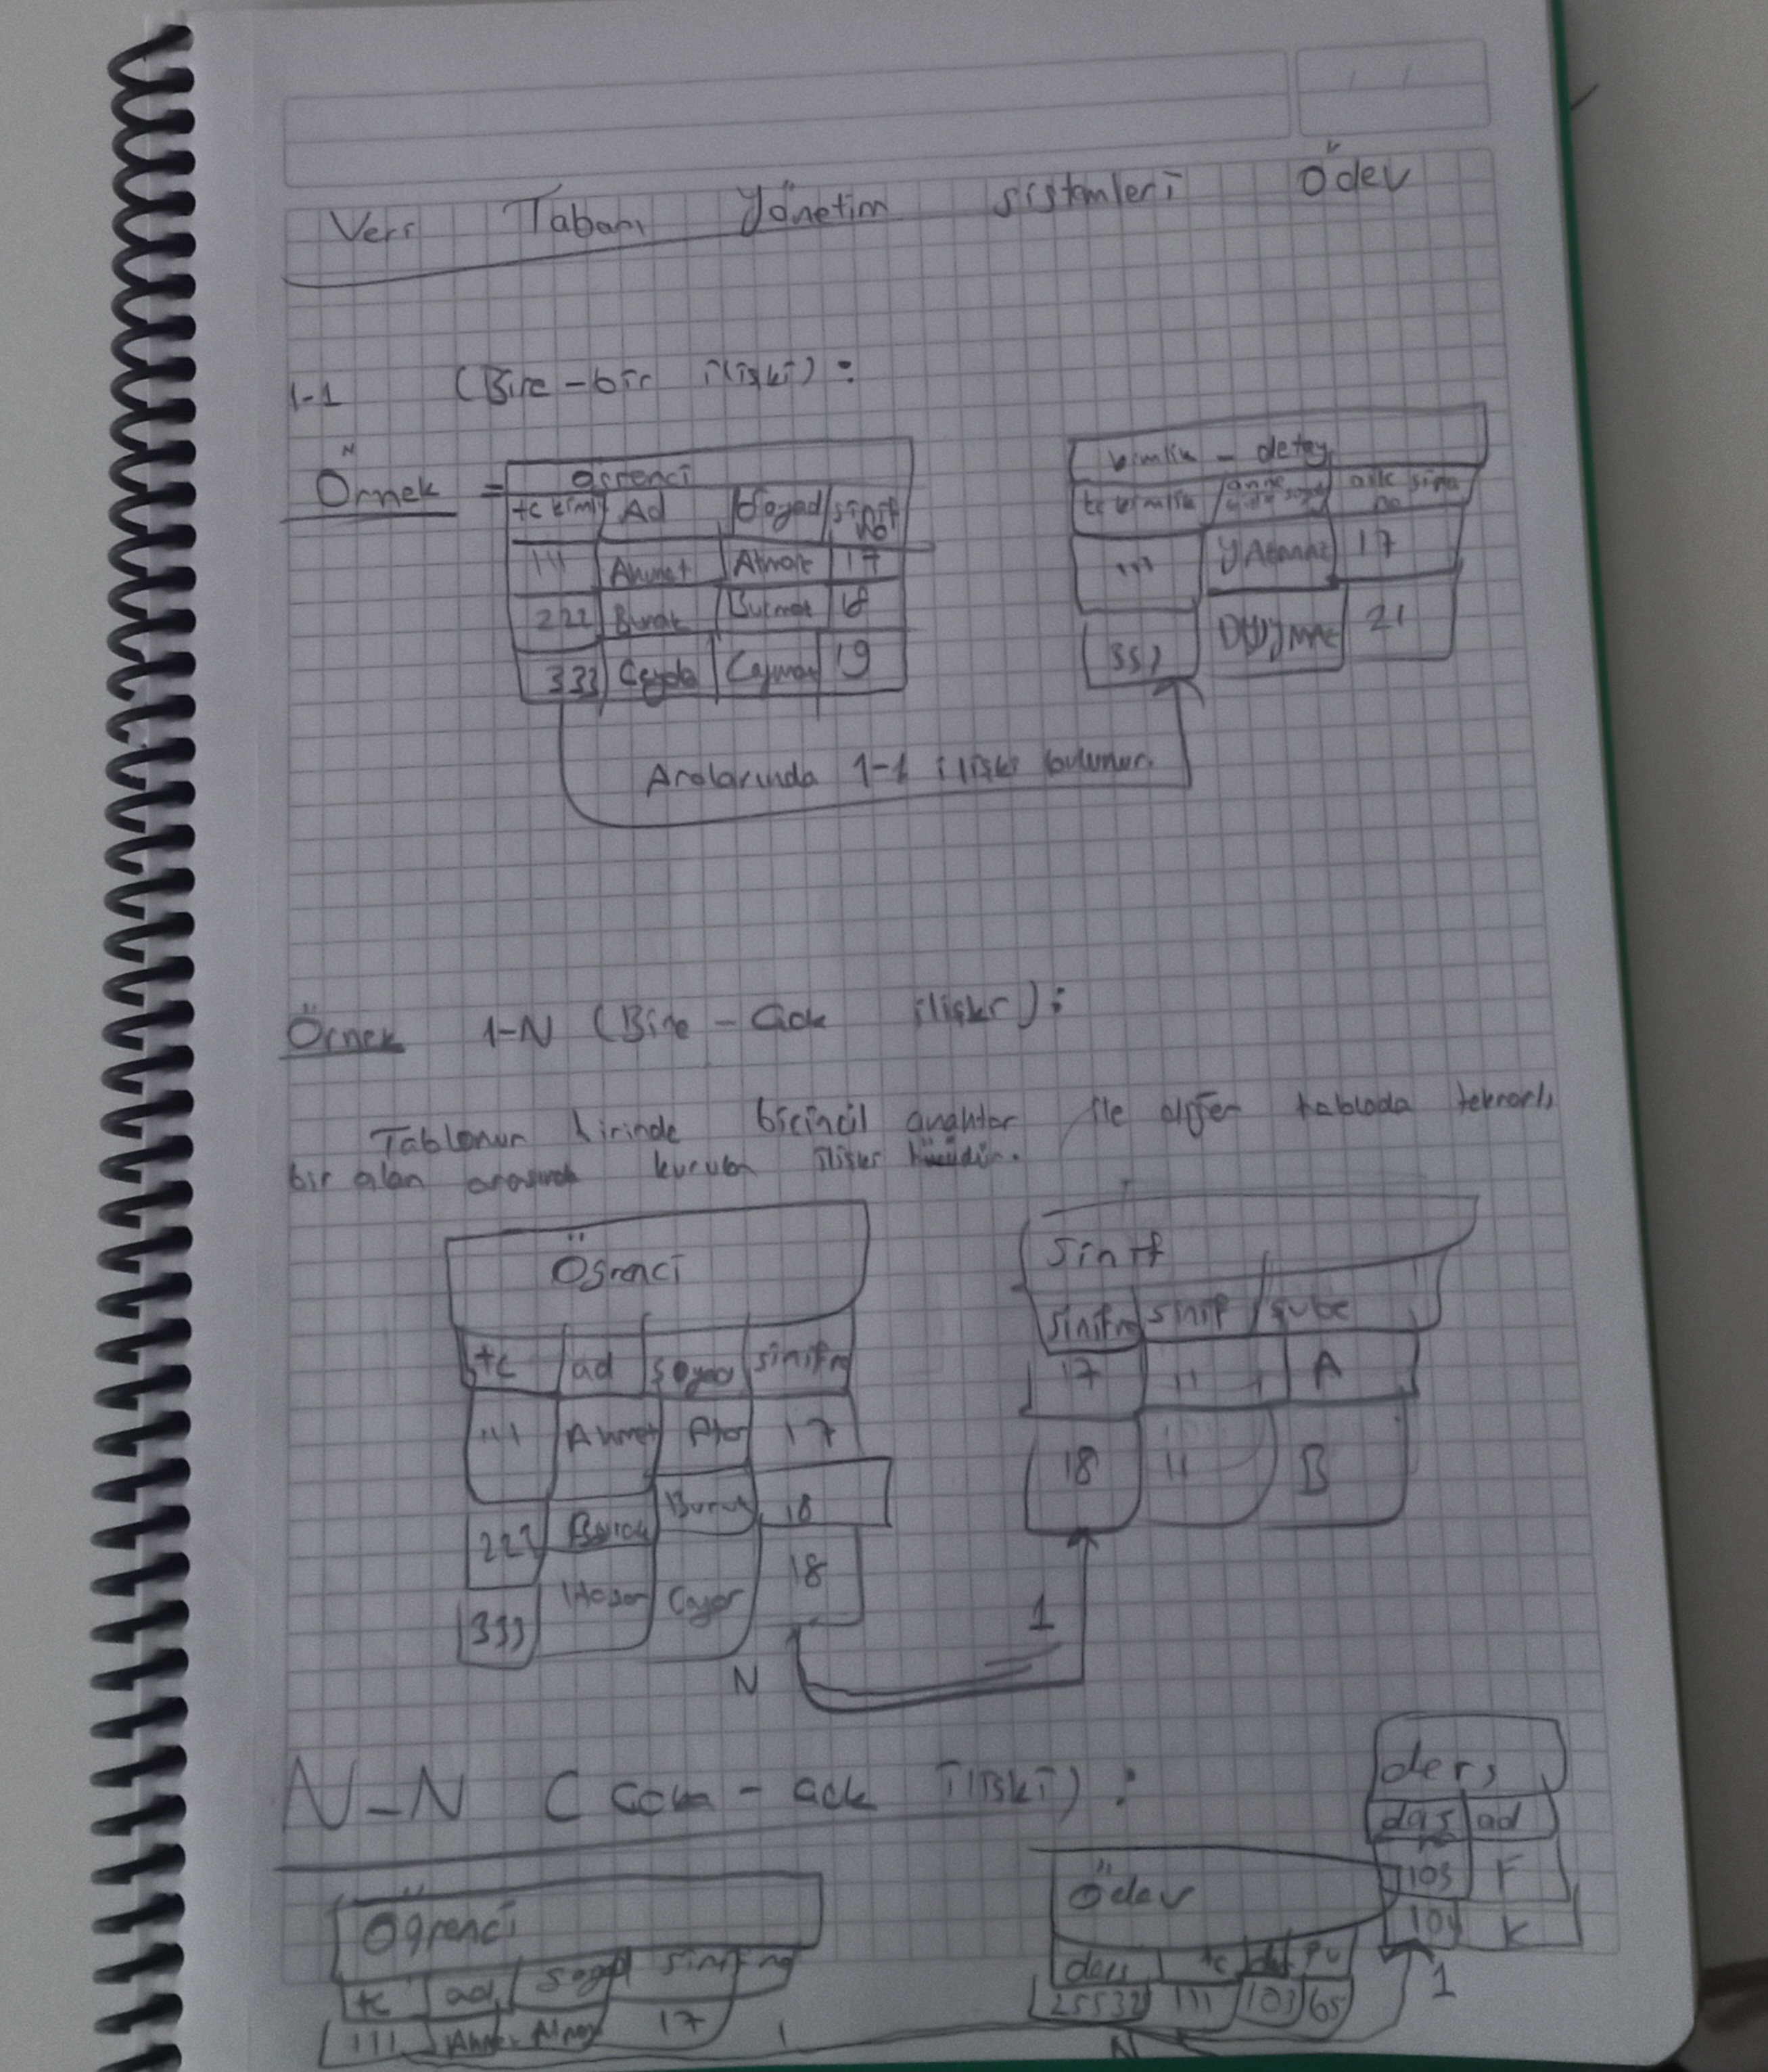 Veri Tabanı Yönetim sistemleri Ödev
1-1 (Bire-bir ilişki):
Örnek =
öğrenci
tc kimlik Ad Soyad sınıf no
111 Ahmet 17
222 Burak 18
333 Ceyda 19
kimlik - detay
tc kimlik anne aile sıra no
111 17
21
Aralarında 1-1 ilişki bulunur.
Örnek 1-N (Bire-Çok ilişki):
Tablonun birinde birincil anahtar ile diğer tabloda tekrarlı
bir alan arasında kurulan ilişki
Öğrenci
tc ad soyad sınıfno
111 Ahmet 17
222 Burak 18
333 Hasan 18
Sınıf
sınıfno sınıf şube
17 11 A
18 11 B
N 1
N-N (Çok-çok ilişki):
Öğrenci
tc ad soyad sınıfno
111 17
Ödev
ders tc
25532 111 103 65
ders
ders no ad
103 F
104 K
1
N